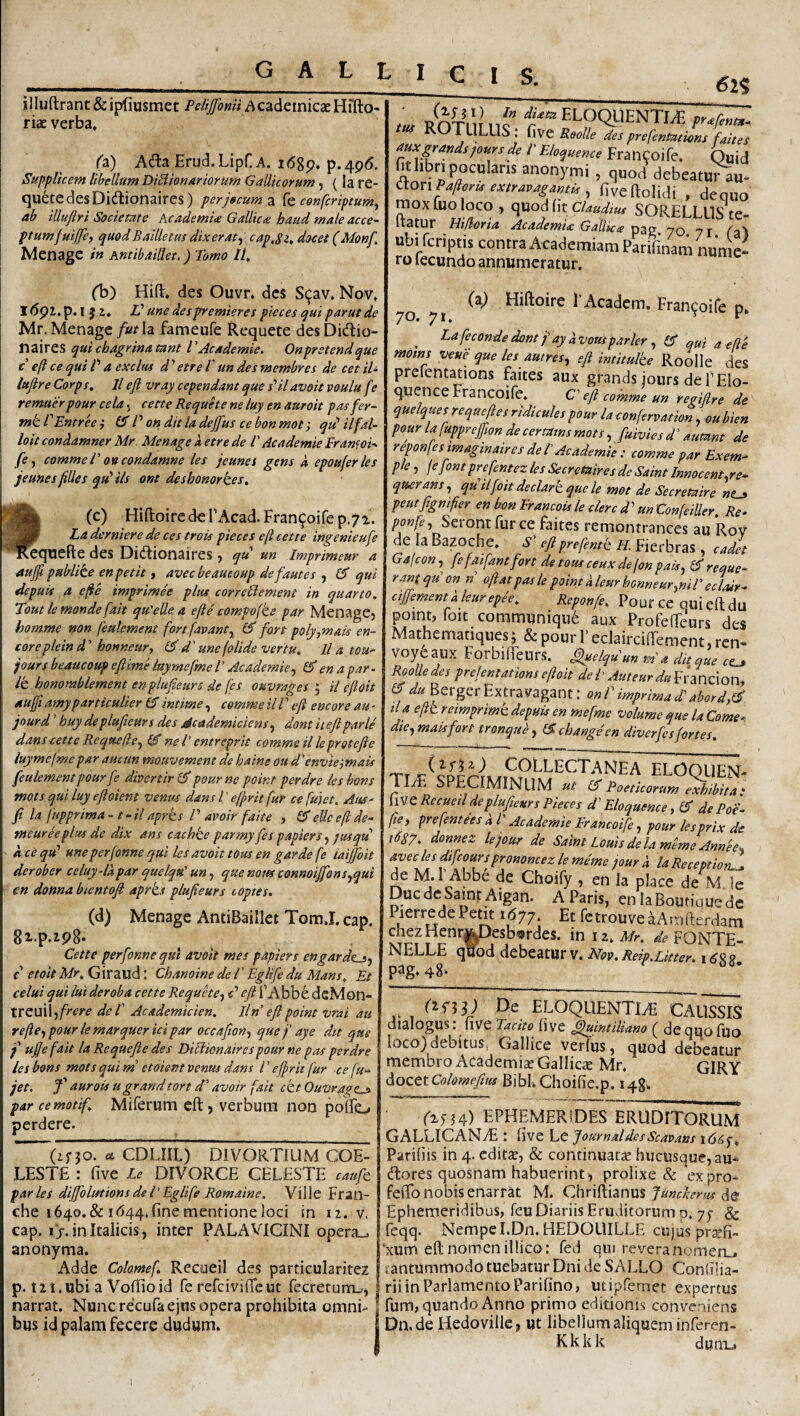 GALLICIS.
625
illustrant & ipsiusmet Pelissonii Academicæ Histo-
riæ verba.
(a) Acta Erud. Lips. A. 1689. p. 496.
Supplicem libellum Dictionariorum Gallicorum, (la re-
quête des Dictionaires) per jocum a se conscriptum,
ab illustri Societate Academiæ Gallicæ haud male acce-
ptum fuisse, quod Bailletus dixerat, cap. 82. docet (Mons.
Menage in Antibaillet.) Tomo II.
(b) Hist. des Ouvr. des Sçav. Nov.
1692. p. 132. L' une des premieres pieces qui parut de
Mr. Menage fut la fameuse Requete des Dictio-
naires qui chagrina tant l' Academie. On pretend que
c' est ce qui l' a exclus d' etre l' un des membres de cet il-
lustre Corps. Il est vray cependant que s'il avoit voulu se
remuer pour cela, cette Requête ne luy en auroit pas fer-
mé l' Entrée; & l' on dit la dessus ce bon mot; qu' il fal-
loit condamner Mr. Menage à etre de l' Academie Françoi-
se, comme l' on condamne les jeunes gens à epouser les
jeunes filles qu' ils ont deshonorées.
(c) Histoire de l' Acad. Françoise p. 72.
La derniere de ces trois pieces est cette ingenieuse
Requeste des Dictionaires, qu' un Imprimeur a
aussi publiée en petit, avec beaucoup de fautes, & qui
depuis a esté imprimée plus correctement in quarto.
Tout le monde sait qu'elle a esté composée par Menage,
homme non seulement fort savant, & fort poly, mais en-
core plein d' honneur, & d' une solide vertu. Il a tou-
jours beaucoup estimé luymesme l' Academie, & en a par-
lé honorablement en plusieurs de ses ouvrages; il estoit
aussi amy particulier & intime, comme il l' est encore au-
jourd' huy de plusieurs des Academiciens, dont il est parlé
dans cette Requeste, & ne l' entreprit comme il le proteste
luymesme par aucun mouvement de haine ou d' envie; mais
seulement pour se divertir & pour ne point perdre les bons
mots qui luy estoient venus dans l' esprit sur ce sujet. Aus-
si la supprima - t - il après l' avoir faite, & elle est de-
meurée plus de dix ans cachée parmy ses papiers, jusqu'
à ce qu' une personne qui les avoit tous en garde se laissoit
derober celuy-là par quelqu' un, que nous connoissons, qui
en donna bientost après plusieurs copies.
(d) Menage AntiBaillet Tom. I. cap.
82. p. 298.
Cette personne qui avoit mes papiers en garde,
c' etoit Mr. Giraud: Chanoine de l' Eglise du Mans. Et
celui qui lui deroba cette Requête, c' est l'Abbé de Mon-
treuil, frere de l' Academicien. Il n' est point vrai au
reste, pour le marquer ici par occasion, que j' aye dit que
j' usse fait la Requeste des Dictionaires pour ne pas perdre
les bons mots qui m' etoient venus dans l' esprit sur ce su-
jet. J' aurois u grand tort d' avoir fait cét Ouvrage
par ce motif. Miserum est, verbum non posse
perdere.
(2530. a CDLIII.) DIVORTIUM COE-
LESTE: sive Le DIVORCE CELESTE causé
par les dissolutions de l' Eglise Romaine. Ville Fran-
che 1640. & 1644. sine mentione loci in 12. v.
cap. 15. in Italicis, inter PALAVICINI opera
anonyma.
Adde Colomes. Recueil des particularitez
p. 121. ubi a Vossio id se rescivisse ut secretum,
narrat. Nunc recusa ejus opera prohibita omni-
bus id palam fecere dudum.
(2531) In dicta ELOQUENTIÆ præsenta-
tus ROTULUS: sive Roolle des presentations faites
aux grands jours de l' Eloquence Françoise. Quid
sit libri pocularis anonymi, quod debeatur au-
ctori Pastoris extravagantis, sive stolidi, de quo
mox suo loco, quod sit Claudius SORELLUS te-
statur Historia Academiæ Gallicæ pag. 70. 71. (a)
ubi scriptis contra Academiam Parisinam nume-
ro secundo annumeratur.
(a) Histoire l' Academ. Françoise p.
70. 71.
La seconde dont j' ay à vous parler, & qui a esté
moins veuë que les autres, est intitulée Roolle des
presentations faites aux grands jours de l' Elo-
quence Francoise. C' est comme un registre de
quelques requestes ridicules pour la conservation, ou bien
pour la suppression de certains mots, suivies d' autant de
réponses imaginaires de l' Academie: comme par Exem-
ple, se sont presentez les Secretaires de Saint Innocent, re-
querans, qu'il soit declaré que le mot de Secretaire ne
peut signifier en bon Francois le clerc d' un Conseiller. Re-
ponse, Seront sur ce faites remontrances au Roy
de la Bazoche. S' est presenté H. Fierbras, cadet
Gascon, se faisant fort de tous ceux de son pais, & reque-
rant qu' on n' ostat pas le point à leur honneur, ni l' eclair-
cissement à leur epée. Reponse. Pour ce qui est du
point, soit communiqué aux Professeurs des
Mathematiques; & pour l' eclaircissement, ren-
voyé aux Forbisseurs. Quelqu' un m' a dit que ce
Roolle des presentations estoit de l' Auteur du Francion,
& du Berger Extravagant: on l' imprima d' abord, &
il a esté reimprimé depuis en mesme volume que la Come-
die, mais fort tronqué, & changé en diverses sortes.
(2532) COLLECTANEA ELOQUEN-
TIÆ SPECIMINUM ut & Poeticorum exhibita:
sive Recueil de plusieurs Pieces d' Eloquence, & de Poë-
sie, presentées à l' Academie Francoise, pour les prix de
1687. donnez le jour de Saint Louis de la même Année,
avec les discours prononcez le méme jour à la Reception
de M. l' Abbé de Choisy, en la place de M. le
Duc de Saint Aigan. A Paris, en la Boutique de
Pierre de Petit 1677. Et se trouve à Amsterdam
chez Henry Desbordes. in 12. Mr. de FONTE-
NELLE quod debeatur v. Nov. Reip. Litter. 1688.
pag. 48.
(2533) De ELOQUENTIÆ CAUSSIS
dialogus: sive Tacito sive Quintiliano (de quo suo
loco) debitus, Gallice versus, quod debeatur
membro Academiæ Gallicæ Mr. GIRY
docet Colomesius Bibl. Choisie. p. 148.
(2534) EPHEMERIDES ERUDITORUM
GALLICANÆ: sive Le Journal des Scavans 1665.
Parisiis in 4. editæ, & continuatæ hucusque, au-
ctores quosnam habuerint, prolixe & ex pro-
fesso nobis enarrat M. Christianus Junckerus de
Ephemeridibus, seu Diariis Eruditorum p. 75 &
seqq. Nempe I. Dn. HEDOUILLE cujus præfi-
xum est nomen illico: sed qui revera nomen
tantummodo tuebatur Dni de SALLO Consilia-
rii in Parlamento Parisino, ut ipsemet expertus
sum, quando Anno primo editionis conveniens
Dn. de Hedoville, ut libellum aliquem inseren-
Kkkk
dum